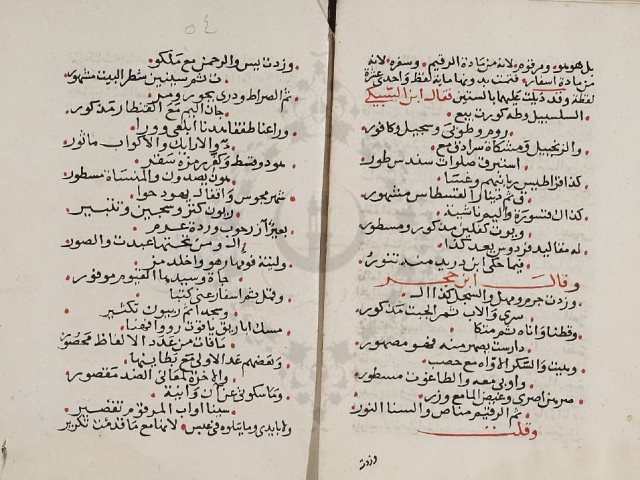 بل هو هو ومرقوم لانه من زيادة الرقيم وسفره لانه
من زيادة اسفار فتمت بدونها ماية لفظ واحدى عشرة
لفظة وقد ذيلت عليهما بالستين فقال ابن السبكي
السلسبيل وطه كورت بيع
روم وطوبى وسجيل وكافور
والزنجبيل ومشكاة سرادق مع
استبرق صلوات سندس طور
كذا قراطيس ربانيهم وغسا
ق ثم دينار القسطاس مشهور
كذاك قسورة واليم ناشية
ويوت كفلين مذكور ومسطور
له مقاليد فردوس يعد كذا
فيما حكى ابن دريد منه تنور
وقال ابن حجر
وزدت حرم ومهل والسجل كذا ال
سري والاب ثم الجبت مذكور
وقطنا واناه ثم متكا
دارست يصهر منه فهو مصهور
وهيت والسكر الاواه مع حصب
واوبي معه والطاغوت مسطور
صرهن اصري وغيض الما مع وزر
ثم الرقيم مناص والسنا النور
وقلت
وزدت
وزدت يس والرحمن مع ملكو
ت ثم سينين شطر البيت مشهور
ثم الصراط ودري يحور ومر
جان اليم مع القنطار مذكور
وراعنا طفقا هدنا ابلعي وورا
ء والارايك والاكواب ماثور
هود وقسط وكفر رمزه سقر
هون يصدون والمنساة مسطور
شهر مجوس واقفال يهود حوا
ريون كنز وسجين وتتبير
بعير آزر حوب وردة عرم
ال ومن تحتها عبدت والصور
ولينة فومها رهو واخلد مز
جاة وسيدها القيوم موفور
وقمل ثم اسفار عنى كتبا
وسجدا ثم ربيون تكثير
مسك اباريق ياقوت رووا فهنا
ما فات من عدد الالفاظ محصور
وبعضهم عد الاولى مع بطاينها
والاخرة لمعاني الضد مقصور
وما سكوتي عن آن وآنية
سينا اواب المرقوم تقصير
ولا بايدي وما يتلوه في عبس لانها مع ما قدمت تكرير